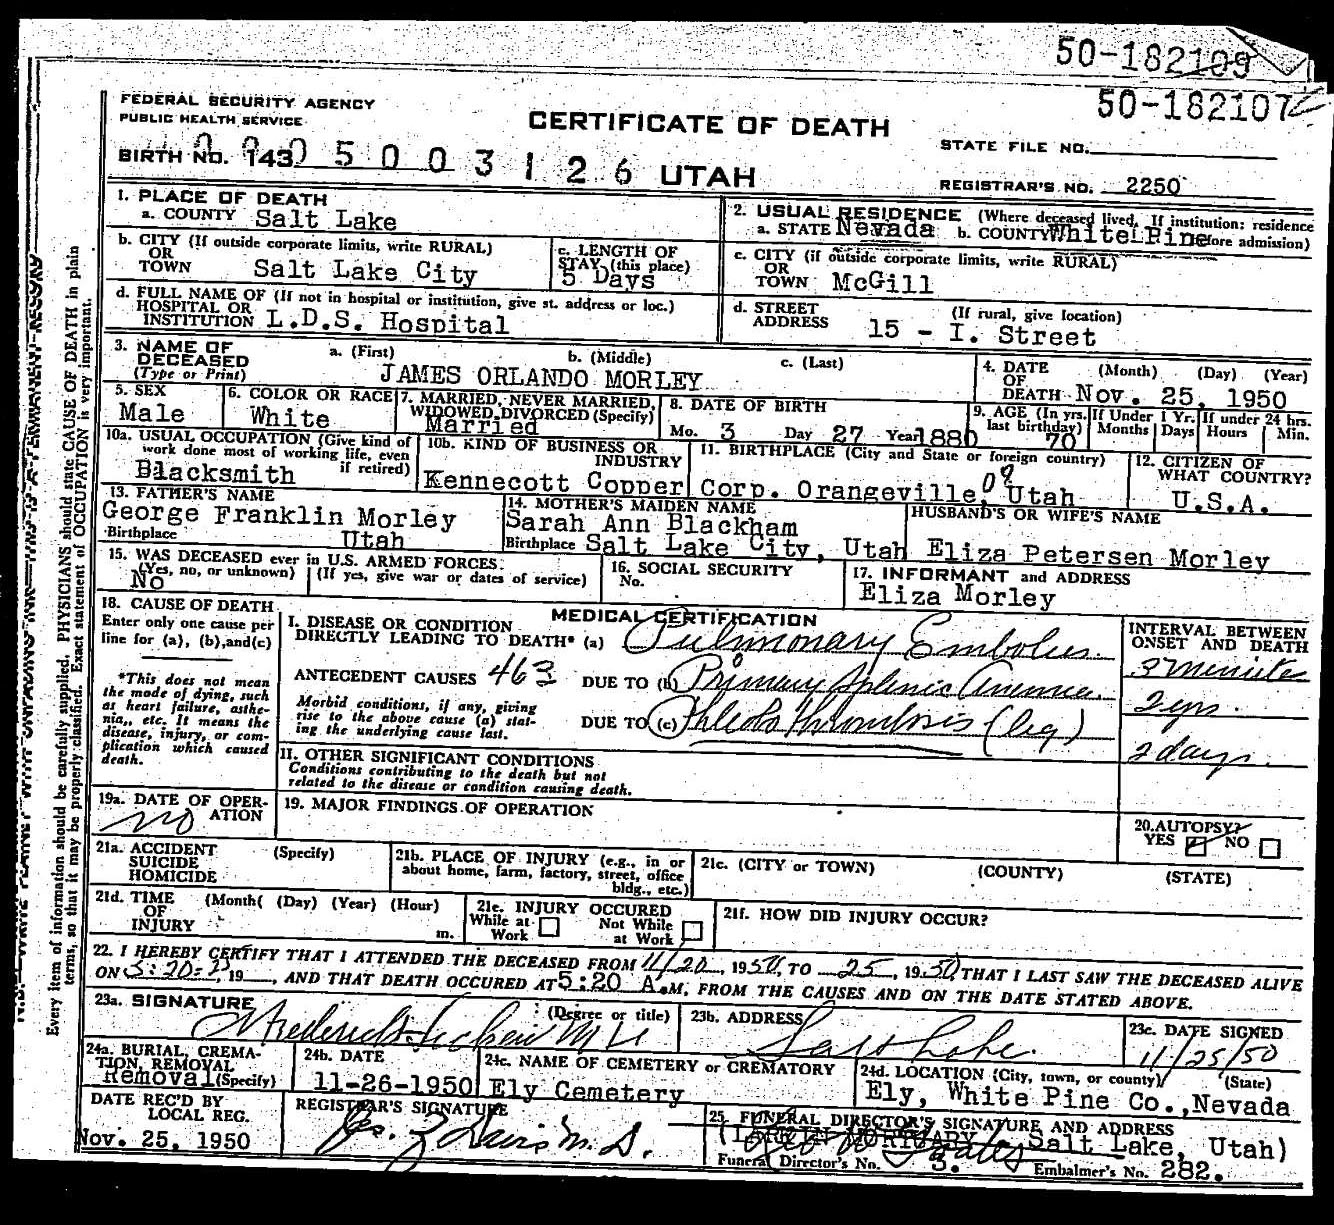 50-182109
50-182107
FEDERAL SECURITY AGENCY
PUBLIC HEALTH SERVICE
CERTIFICATE OF DEATH
STATE FILE NO.
BIRTH NO. 143
0005003126 UTAH
REGISTRAR'S NO. 2250
1. PLACE OF DEATH
a. COUNTY Salt Lake
2. USUAL RESIDENCE (Where deceased lived. If institution: residence before admission)
a. STATE Nevada b. COUNTY White Pine
b. CITY (If outside corporate limits, write RURAL)
OR
TOWN Salt Lake City
c. LENGTH OF
STAY (this place)
5 Days
c. CITY (if outside corporate limits, write RURAL)
OR
TOWN McGill
d. FULL NAME OF (If not in hospital or institution, give st. address or loc.)
HOSPITAL OR
INSTITUTION L.D.S. Hospital
d. STREET (If rural, give location)
ADDRESS 15 - I. Street
3. NAME OF
DECEASED
(Type or Print)
a. (First) b. (Middle) c. (Last)
JAMES ORLANDO MORLEY
4. DATE (Month) (Day) (Year)
OF
DEATH Nov. 25, 1950
5. SEX
Male
6. COLOR OR RACE
White
7. MARRIED, NEVER MARRIED,
WIDOWED, DIVORCED (Specify)
Married
8. DATE OF BIRTH
Mo. 3 Day 27 Year 1880
9. AGE (In yrs. last birthday) 70
If Under 1 Yr. Months Days
If under 24 hrs. Hours Min.
10a. USUAL OCCUPATION (Give kind of
work done most of working life, even
if retired)
Blacksmith
10b. KIND OF BUSINESS OR
INDUSTRY
Kennecott Copper Corp.
11. BIRTHPLACE (City and State or foreign country)
09
Orangeville, Utah
12. CITIZEN OF
WHAT COUNTRY?
U.S.A.
13. FATHER'S NAME
George Franklin Morley
Birthplace Utah
14. MOTHER'S MAIDEN NAME
Sarah Ann Blackham
Birthplace Salt Lake City, Utah
HUSBAND'S OR WIFE'S NAME
Eliza Petersen Morley
15. WAS DECEASED ever in U.S. ARMED FORCES:
(Yes, no, or unknown) (If yes, give war or dates of service)
No
16. SOCIAL SECURITY
No.
17. INFORMANT and ADDRESS
Eliza Morley
18. CAUSE OF DEATH
Enter only one cause per
line for (a), (b),and(c)
*This does not mean
the mode of dying, such
as heart failure, asthe-
nia,, etc. It means the
disease, injury, or com-
plication which caused
death.
MEDICAL CERTIFICATION
I. DISEASE OR CONDITION
DIRECTLY LEADING TO DEATH* (a) Pulmonary Embolus
ANTECEDENT CAUSES 463 DUE TO (b) Primary Splenic Anemia
Morbid conditions, if any, giving
rise to the above cause (a) stat-
ing the underlying cause last.
DUE TO (c) Phlebothrombosis (leg)
II. OTHER SIGNIFICANT CONDITIONS
Conditions contributing to the death but not
related to the disease or condition causing death.
INTERVAL BETWEEN
ONSET AND DEATH
3 minutes
2 yrs.
2 days.
19a. DATE OF OPER-
ATION
no
19. MAJOR FINDINGS OF OPERATION
20. AUTOPSY?
YES NO
21a. ACCIDENT (Specify)
SUICIDE
HOMICIDE
21b. PLACE OF INJURY (e.g., in or
about home, farm, factory, street, office
bldg., etc.)
21c. (CITY or TOWN) (COUNTY) (STATE)
21d. TIME (Month( (Day) (Year) (Hour)
OF
INJURY m.
21e. INJURY OCCURED
While at Work Not While at Work
21f. HOW DID INJURY OCCUR?
22. I HEREBY CERTIFY THAT I ATTENDED THE DECEASED FROM 11/20, 1950, TO 25, 1950 THAT I LAST SAW THE DECEASED ALIVE
ON 5:20-25, 19 , AND THAT DEATH OCCURED AT 5:20 A.M, FROM THE CAUSES AND ON THE DATE STATED ABOVE.
23a. SIGNATURE (Degree or title)
23b. ADDRESS
Salt Lake
23c. DATE SIGNED
11/25/50
24a. BURIAL, CREMA-
TION, REMOVAL
(Specify)
Removal
24b. DATE
11-26-1950
24c. NAME OF CEMETERY or CREMATORY
Ely Cemetery
24d. LOCATION (City, town, or county) (State)
Ely, White Pine Co., Nevada
DATE REC'D BY
LOCAL REG.
Nov. 25, 1950
REGISTRAR'S SIGNATURE
25. FUNERAL DIRECTOR'S SIGNATURE AND ADDRESS
MORTUARY Salt Lake, Utah)
Funeral Director's No. 3. Embalmer's No. 282.
Every item of information should be carefully supplied. PHYSICIANS should state CAUSE OF DEATH in plain
terms, so that it may be properly classified. Exact statement of OCCUPATION is very important.